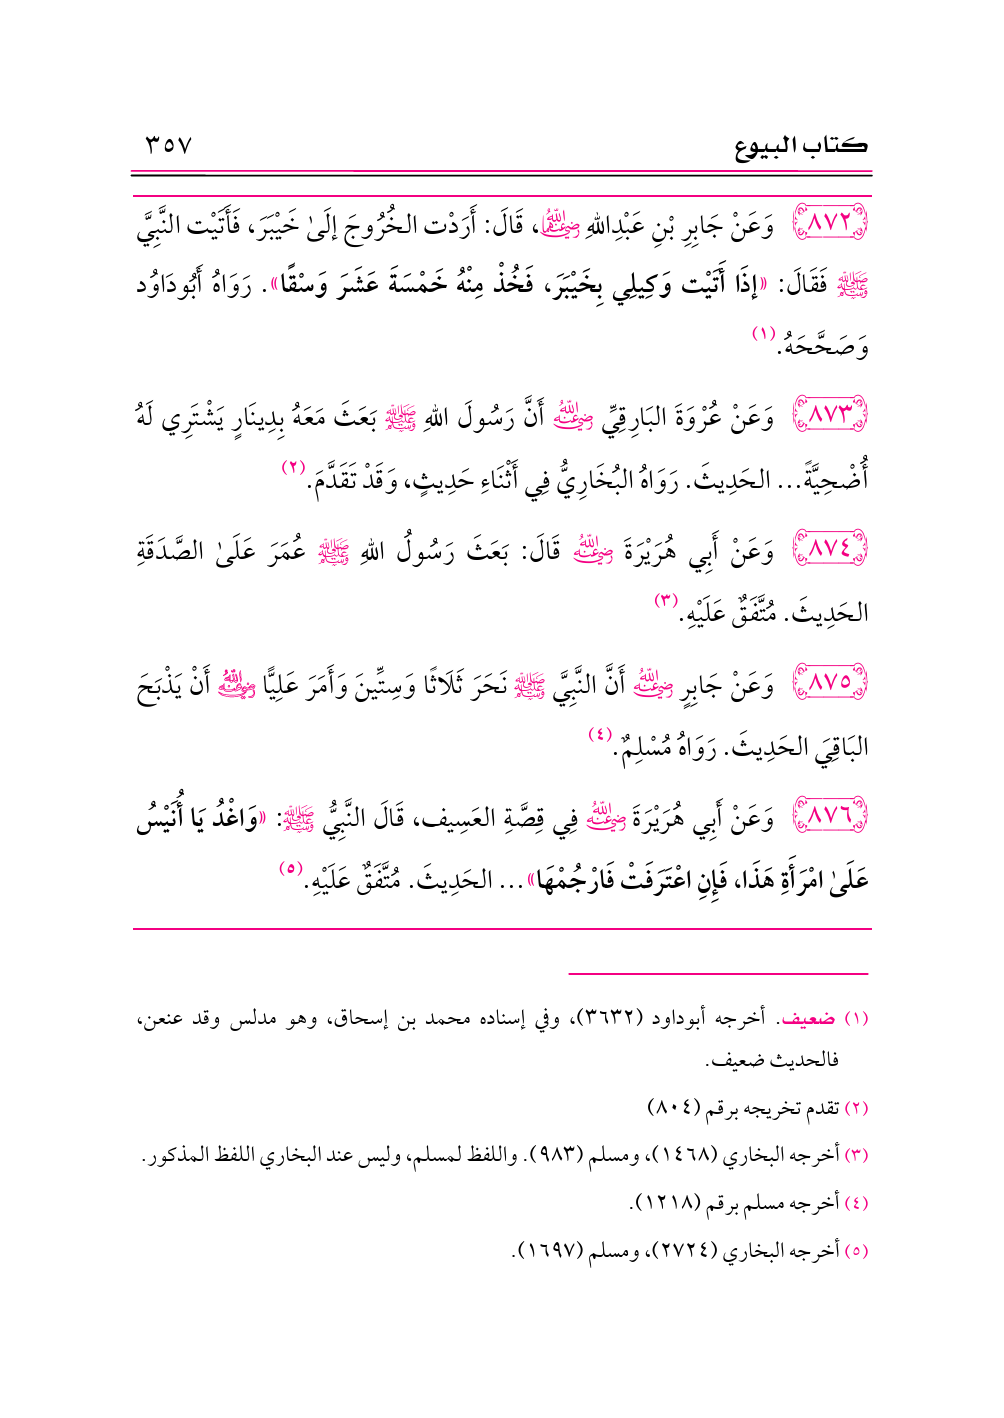 كتاب البيوع ٣٥٧
٨٧٢ وَعَنْ جَابِرِ بْنِ عَبْدِاللهِ رضي الله عنهما، قَالَ: أَرَدْت الخُرُوجَ إلَىٰ خَيْبَرَ، فَأَتَيْت النَّبِيَّ
ﷺ فَقَالَ: «إذَا أَتَيْت وَكِيلِي بِخَيْبَرَ، فَخُذْ مِنْهُ خَمْسَةَ عَشَرَ وَسْقًا». رَوَاهُ أَبُودَاوُد
وَصَحَّحَهُ.(١)
٨٧٣ وَعَنْ عُرْوَةَ البَارِقِيِّ رضي الله عنه أَنَّ رَسُولَ اللهِ ﷺ بَعَثَ مَعَهُ بِدِينَارٍ يَشْتَرِي لَهُ
أُضْحِيَّةً... الحَدِيثَ. رَوَاهُ البُخَارِيُّ فِي أَثْنَاءِ حَدِيثٍ، وَقَدْ تَقَدَّمَ.(٢)
٨٧٤ وَعَنْ أَبِي هُرَيْرَةَ رضي الله عنه قَالَ: بَعَثَ رَسُولُ اللهِ ﷺ عُمَرَ عَلَىٰ الصَّدَقَةِ
الحَدِيثَ. مُتَّفَقٌ عَلَيْهِ.(٣)
٨٧٥ وَعَنْ جَابِرٍ رضي الله عنه أَنَّ النَّبِيَّ ﷺ نَحَرَ ثَلَاثًا وَسِتِّينَ وَأَمَرَ عَلِيًّا رضي الله عنه أَنْ يَذْبَحَ
البَاقِيَ الحَدِيثَ. رَوَاهُ مُسْلِمٌ.(٤)
٨٧٦ وَعَنْ أَبِي هُرَيْرَةَ رضي الله عنه فِي قِصَّةِ العَسِيف، قَالَ النَّبِيُّ ﷺ: «وَاغْدُ يَا أُنَيْسُ
عَلَىٰ امْرَأَةِ هَذَا، فَإِنِ اعْتَرَفَتْ فَارْجُمْهَا»... الحَدِيثَ. مُتَّفَقٌ عَلَيْهِ.(٥)
(١) ضعيف. أخرجه أبوداود (٣٦٣٢)، وفي إسناده محمد بن إسحاق، وهو مدلس وقد عنعن،
فالحديث ضعيف.
(٢) تقدم تخريجه برقم (٨٠٤)
(٣) أخرجه البخاري (١٤٦٨)، ومسلم (٩٨٣). واللفظ لمسلم، وليس عند البخاري اللفظ المذكور.
(٤) أخرجه مسلم برقم (١٢١٨).
(٥) أخرجه البخاري (٢٧٢٤)، ومسلم (١٦٩٧).